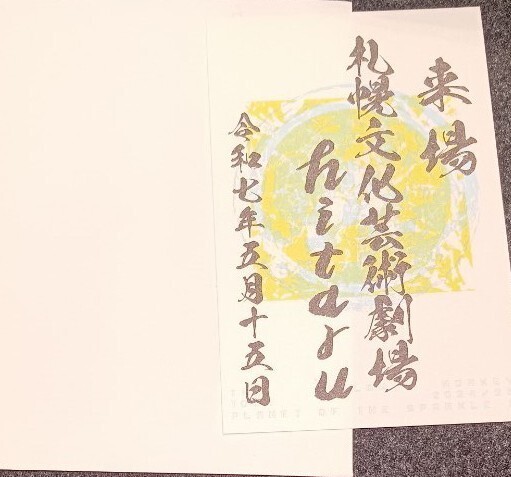 来場
札幌文化芸術劇場
hitaru
令和七年五月十五日